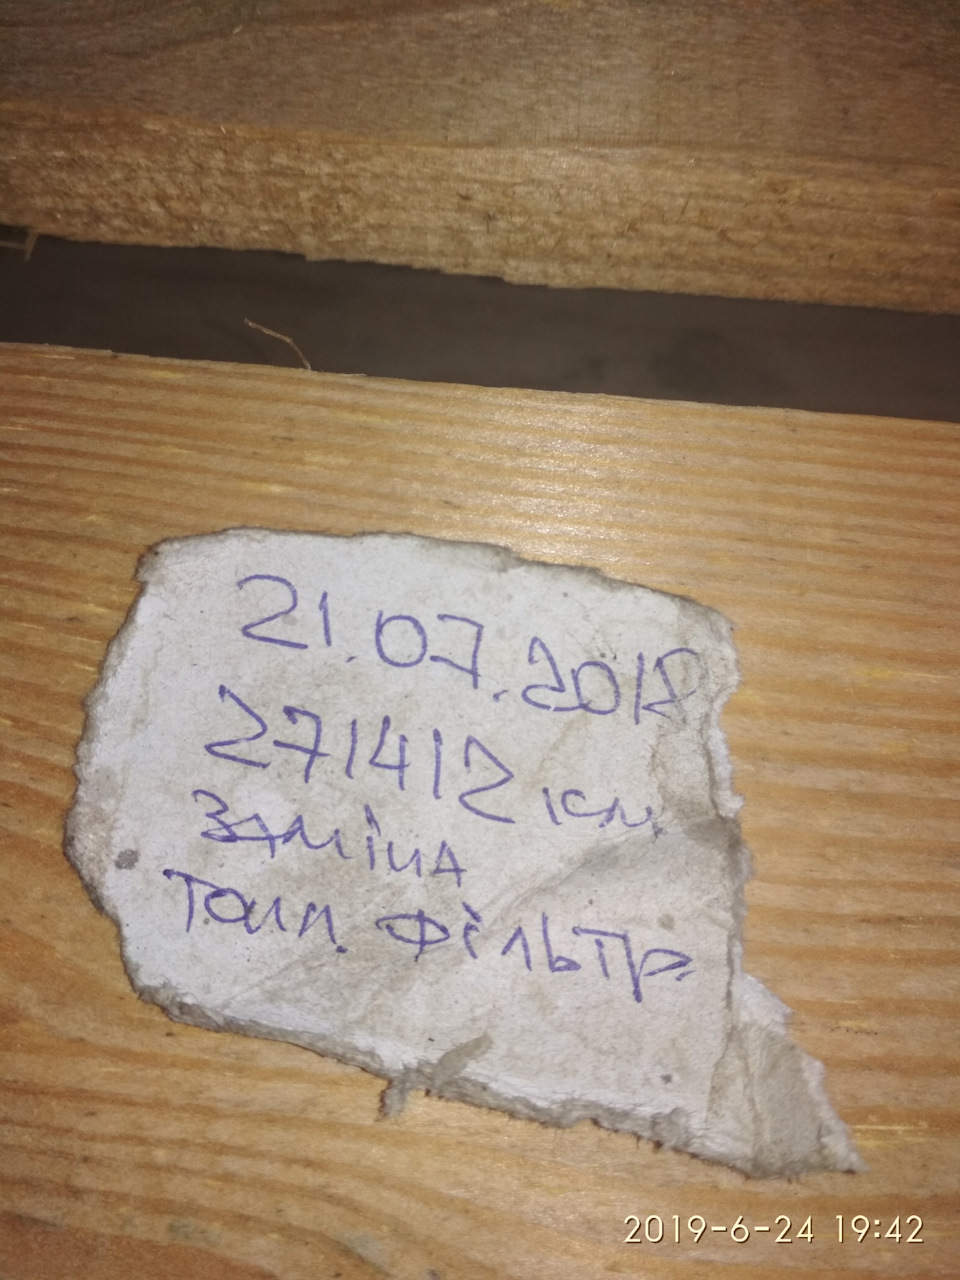 21.07.2018
271412 км.
Заміна
Топл. фільтр.
2019-6-24 19:42